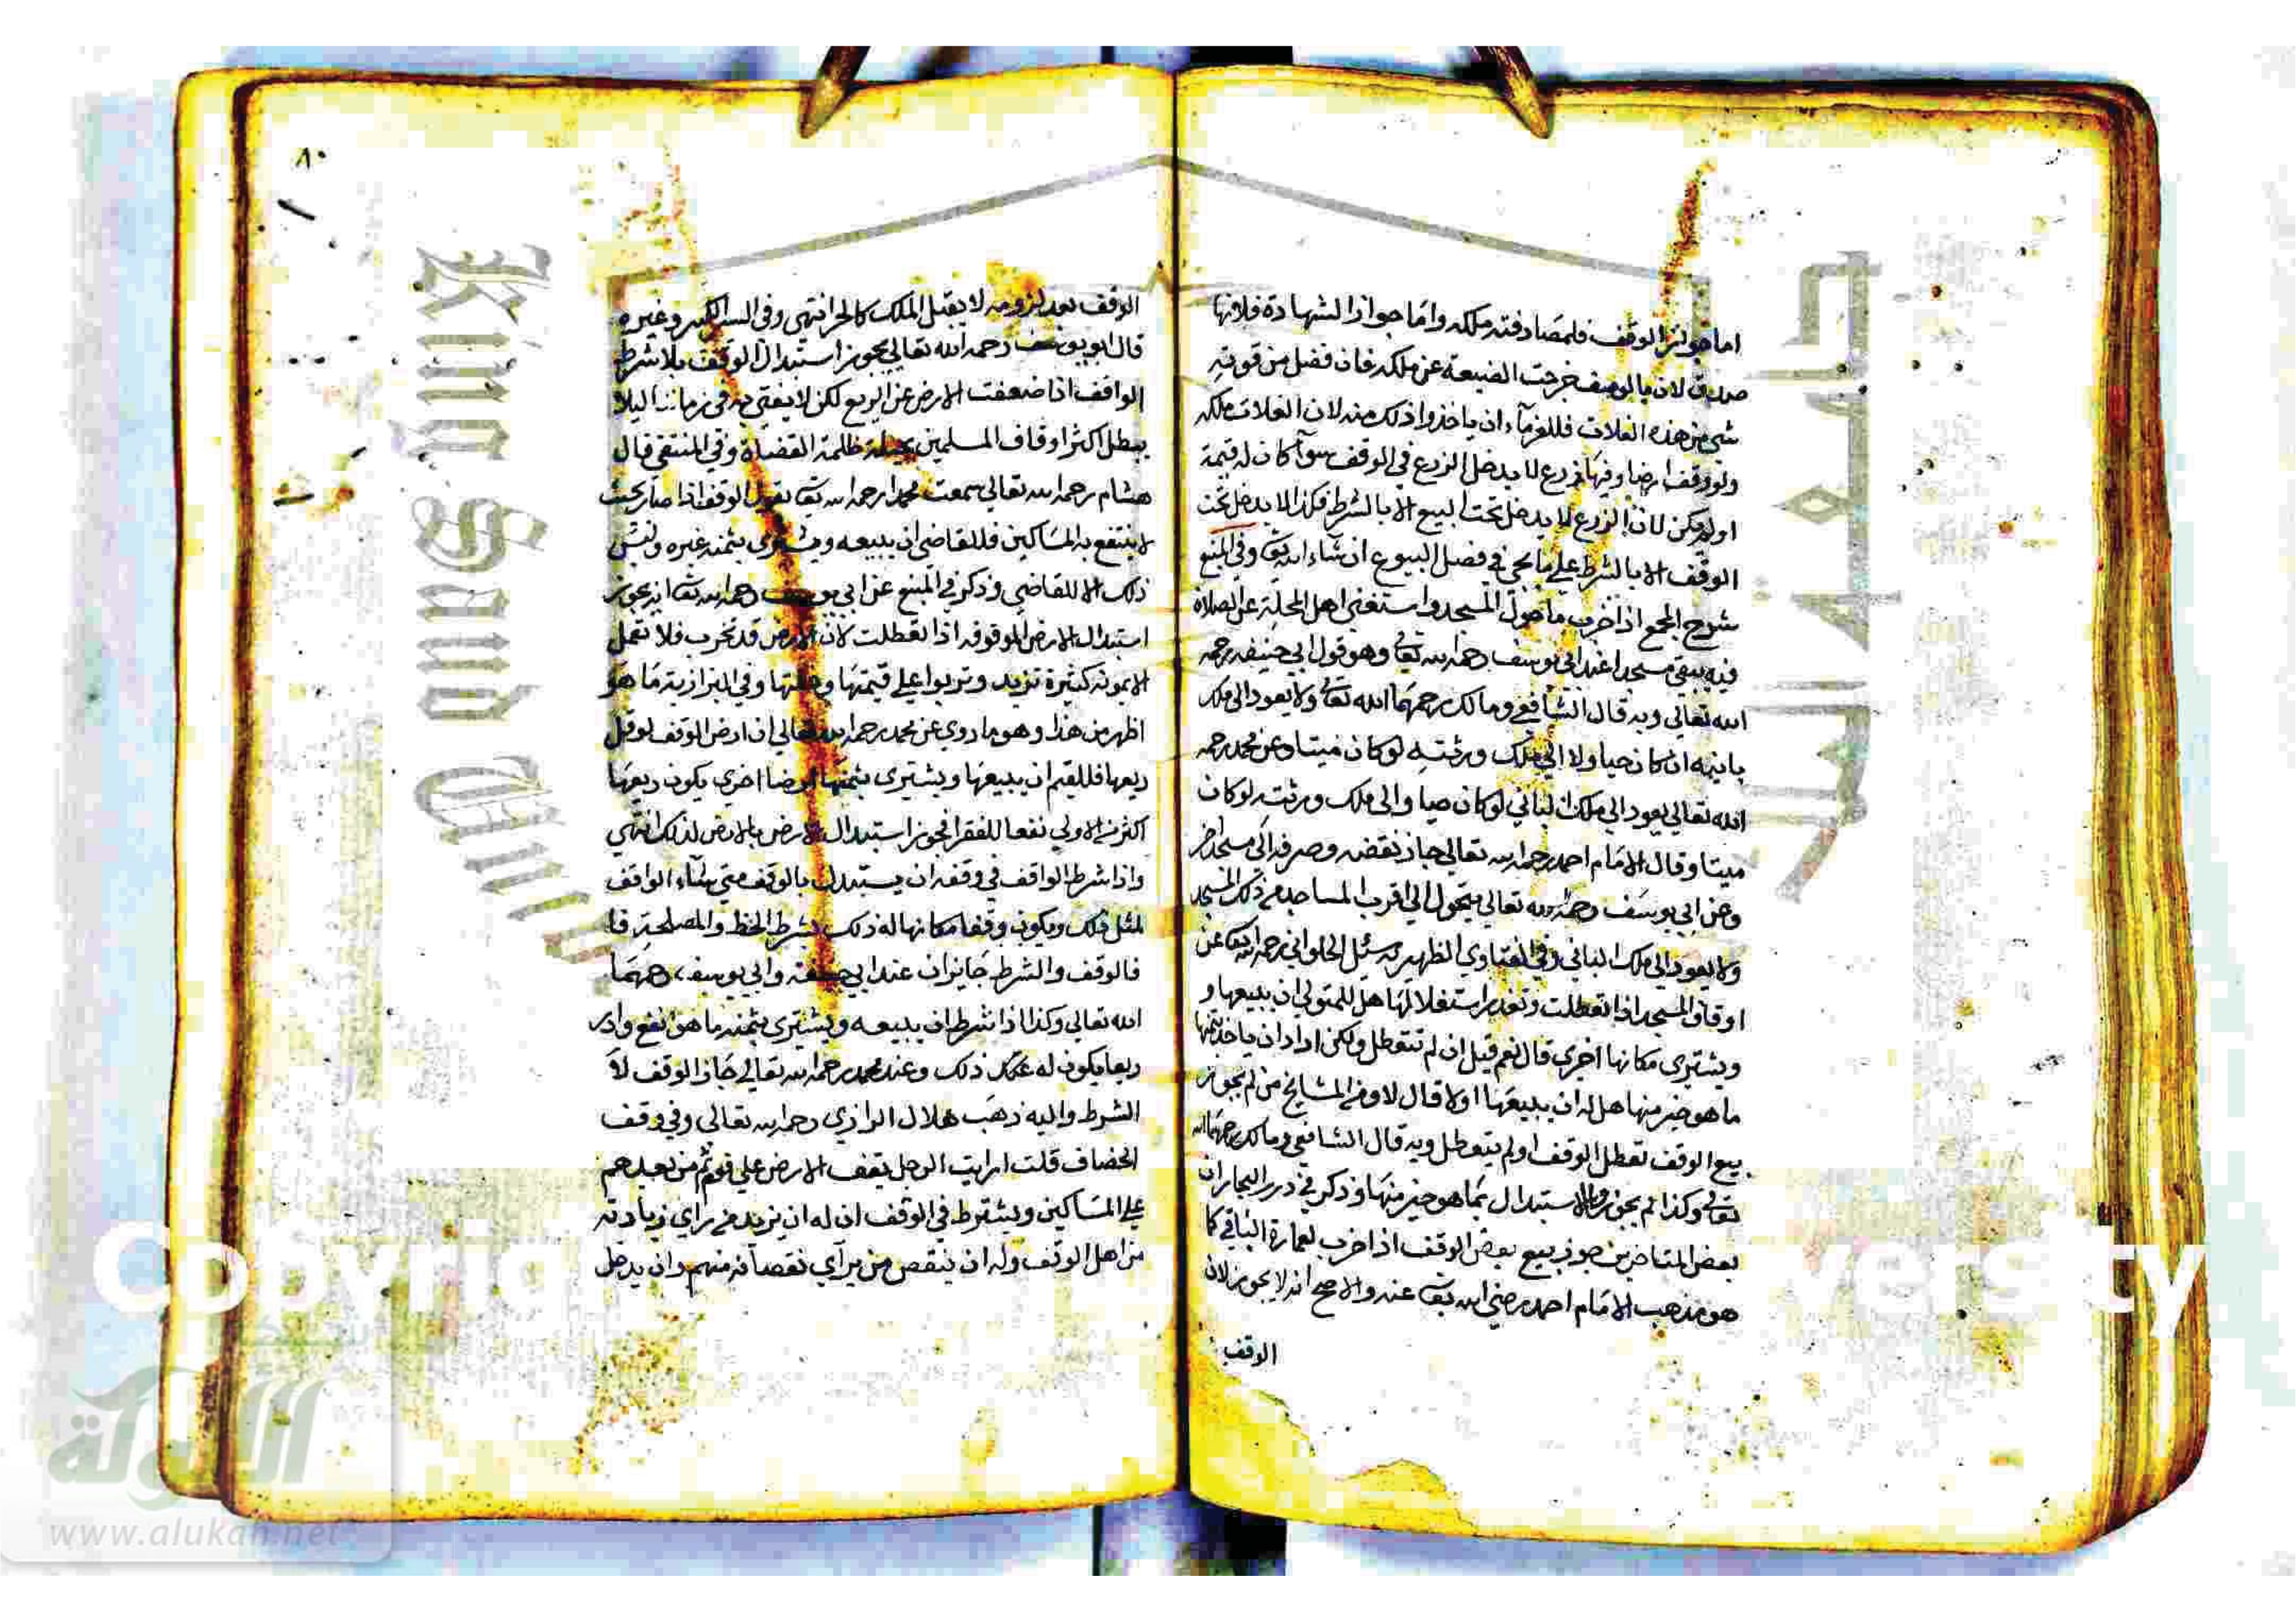 اما جواز الوقف فلمصادفته ملكه واما جواز الشهادة فلانها
صدق لان بالوقف خرجت الضيعة عن ملكه فان فضل من قوته
شي من هذه الغلات فللغرمآء ان ياخذوا ذلك منه لان الغلات ملكه
ولو وقف ارضا وفيها زرع لا يدخل الزرع في الوقف سوآ كان له قيمة
او لم يكن لان الزرع لا يدخل تحت البيع الا بالشرط فكذا لا يدخل تحت
الوقف الا بالشرط علي ما يجي في فصل البيوع ان شآء الله تعا وفي المنبع
شرح المجمع اذا خرب ما حول المسجد واستغني اهل المحلة عن الصلاة
فيه يبقي مسجدا عند ابي يوسف رحمه الله تعالي وهو قول ابي حنيفه رحمه
الله تعالي وبه قال الشافعي ومالك رحمهما الله تعا ولا يعود الي ملك
بانيه ان كان حيا ولا الي ملك ورثته لو كان ميتا وعن محمد رحمه
الله تعالي يعود الي ملك الباني لو كان حيا والي ملك ورثته لو كان
ميتا وقال الامام احمد رحمه الله تعالي جاز نقضه وصرفه الي مسجد اخر
وعن ابي يوسف رحمه الله تعالي يتحول الي اقرب المساجد من ذلك المسجد
ولا يعود الي ملك الباني وفي الفتاوي الظهيريه سئل الحلواني رحمه الله تعا عن
اوقاف المسجد اذا تعطلت وتعذر استغلالها هل للمتولي ان يبيعها و
ويشتري مكانها اخري قال نعم قيل ان لم تتعطل ولكن اراد ان ياخذ بثمنها
ما هو خير منها هل له ان يبيعها او لا قال لا ومن المشايخ من لم يجوز
بيع الوقف تعطل الوقف او لم يتعطل وبه قال الشافعي ومالك رحمهما الله
تعالي وكذا لم يجوز والاستبدال بما هو خير منها وذكر في درر البحار ان
بعض المتاخرين جوز بيع بعض الوقف اذا خرب لعمارة الباقي كما
هو مذهب الامام احمد رضي الله تعا عنه والاصح انه لا يجوز لان
الوقف
٨٠
الوقف بعد لزومه لا يقبل الملك كالحر انتهي وفي السير الكبير وغيره
قال ابو يوسف رحمه الله تعالي يجوز استبدال الوقف بلا شرط
الواقف اذا ضعفت الارض عن الريع لكن لا يفتي به في زماننا ليلا
يبطل اكثر اوقاف المسلمين بحيلة ظلمة القضاة وفي المنتقي قال
هشام رحمه الله تعالي سمعت محمدا رحمه الله تعا يقول الوقف اذا صار بحيث
لا ينتفع به المساكين فللقاضي ان يبيعه ويشتري بثمنه غيره وليس
ذلك الا للقاضي وذكر في المنبع عن ابي يوسف رحمه الله تعا انه يجوز
استبدال الارض الموقوفه اذا تعطلت لان الارض قد تخرب فلا تعمل
الا بمونة كثيرة تزيد وتربوا علي قيمتها وغلتها وفي البزازية ما هو
اظهر من هذا وهو ما روي عن محمد رحمه الله تعالي ان ارض الوقف لو قل
ريعها فللقيم ان يبيعها ويشتري بثمنها ارضا اخري يكون ريعها
اكثر من الاولي نفعا للفقرا فجوز استبدال الارض بالارض لذلك انتهي
واذا شرط الواقف في وقفه ان يستبدل بالوقف متي شآء الواقف
لمثل ذلك ويكون وقفا مكانها له ذلك بشرط الحظ والمصلحة فا
فالوقف والشرط جايزان عند ابي حنيفة وابي يوسف رحمهما
الله تعالي وكذا اذا شرط ان يبيعه ويشتري بثمنه ما هو انفع وادر
ريعا يكون له ذلك وعند محمد رحمه الله تعالي جاز الوقف لا
الشرط واليه ذهب هلال الرازي رحمه الله تعالي وفي وقف
الخصاف قلت ارايت الرجل يقف الارض علي قوم ثم من بعدهم
علي المساكين ويشترط في الوقف ان له ان يزيد من راي زيادته
من اهل الوقف وله ان ينقص من يرآي نقصآنه منهم وان يدخل
جامعة الملك
King Saud Univ
Copyrig
versity
الألوكة
www.alukah.net